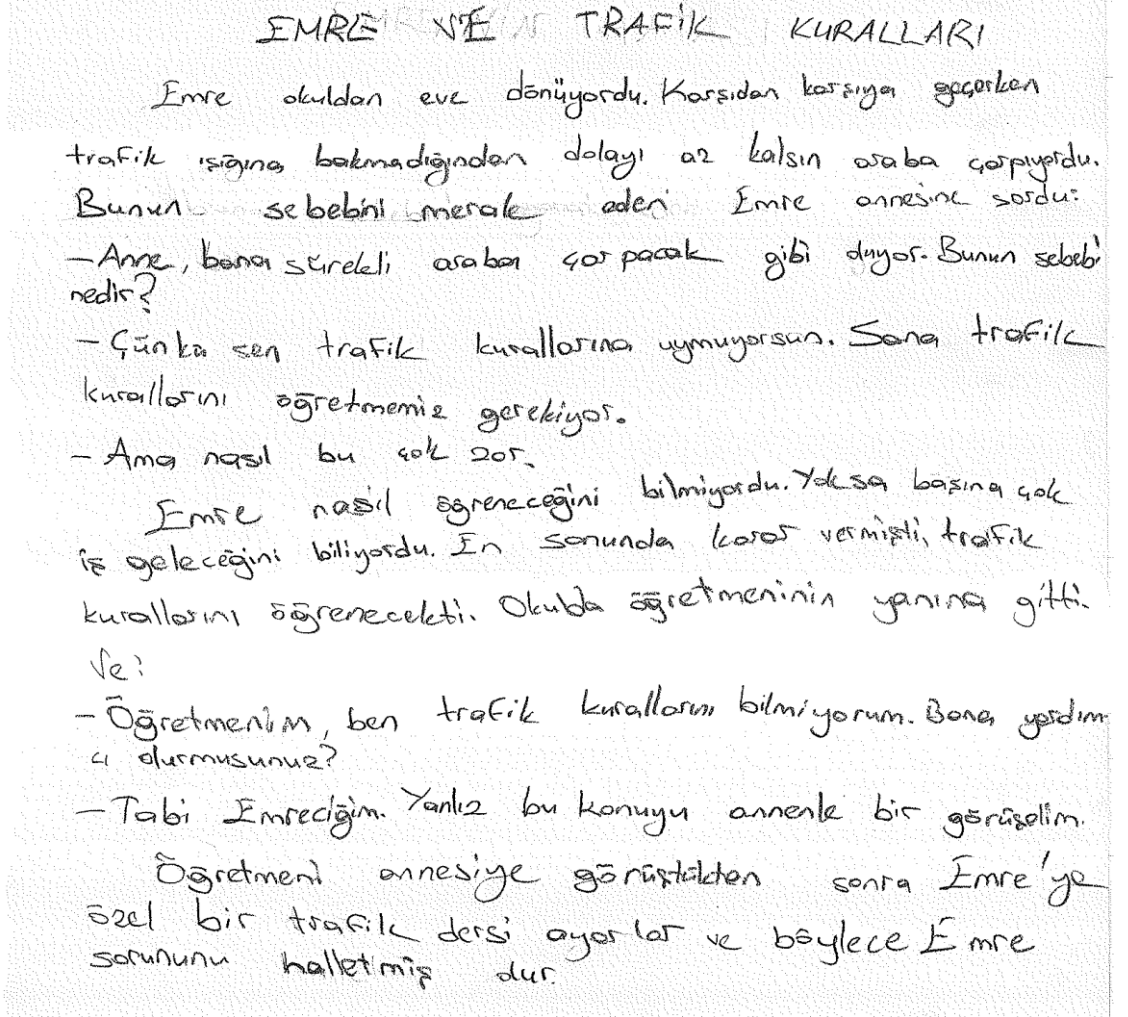 EMRE VE TRAFİK KURALLARI
Emre okuldan eve dönüyordu. Karşıdan karşıya geçerken
trafik ışığına bakmadığından dolayı az kalsın araba çarpıyordu.
Bunun sebebini merak eden Emre annesine sordu:
-Anne, bana sürekli araba çarpacak gibi oluyor. Bunun sebebi
nedir?
- Çünkü sen trafik kurallarına uymuyorsun. Sana trafik
kurallarını öğretmemiz gerekiyor.
- Ama nasıl bu çok zor.
Emre nasıl öğreneceğini bilmiyordu. Yoksa başına çok
iş geleceğini biliyordu. En sonunda karar vermişti, trafik
kurallarını öğrenecekti. Okulda öğretmeninin yanına gitti.
Ve:
- Öğretmenim, ben trafik kurallarını bilmiyorum. Bana yardım
cı olurmusunuz?
-Tabi Emreciğim. Yanlız bu konuyu annenle bir görüşelim.
Öğretmeni annesiye görüştükten sonra Emre'ye
özel bir trafik dersi ayarlar ve böylece Emre
sorununu halletmiş olur.